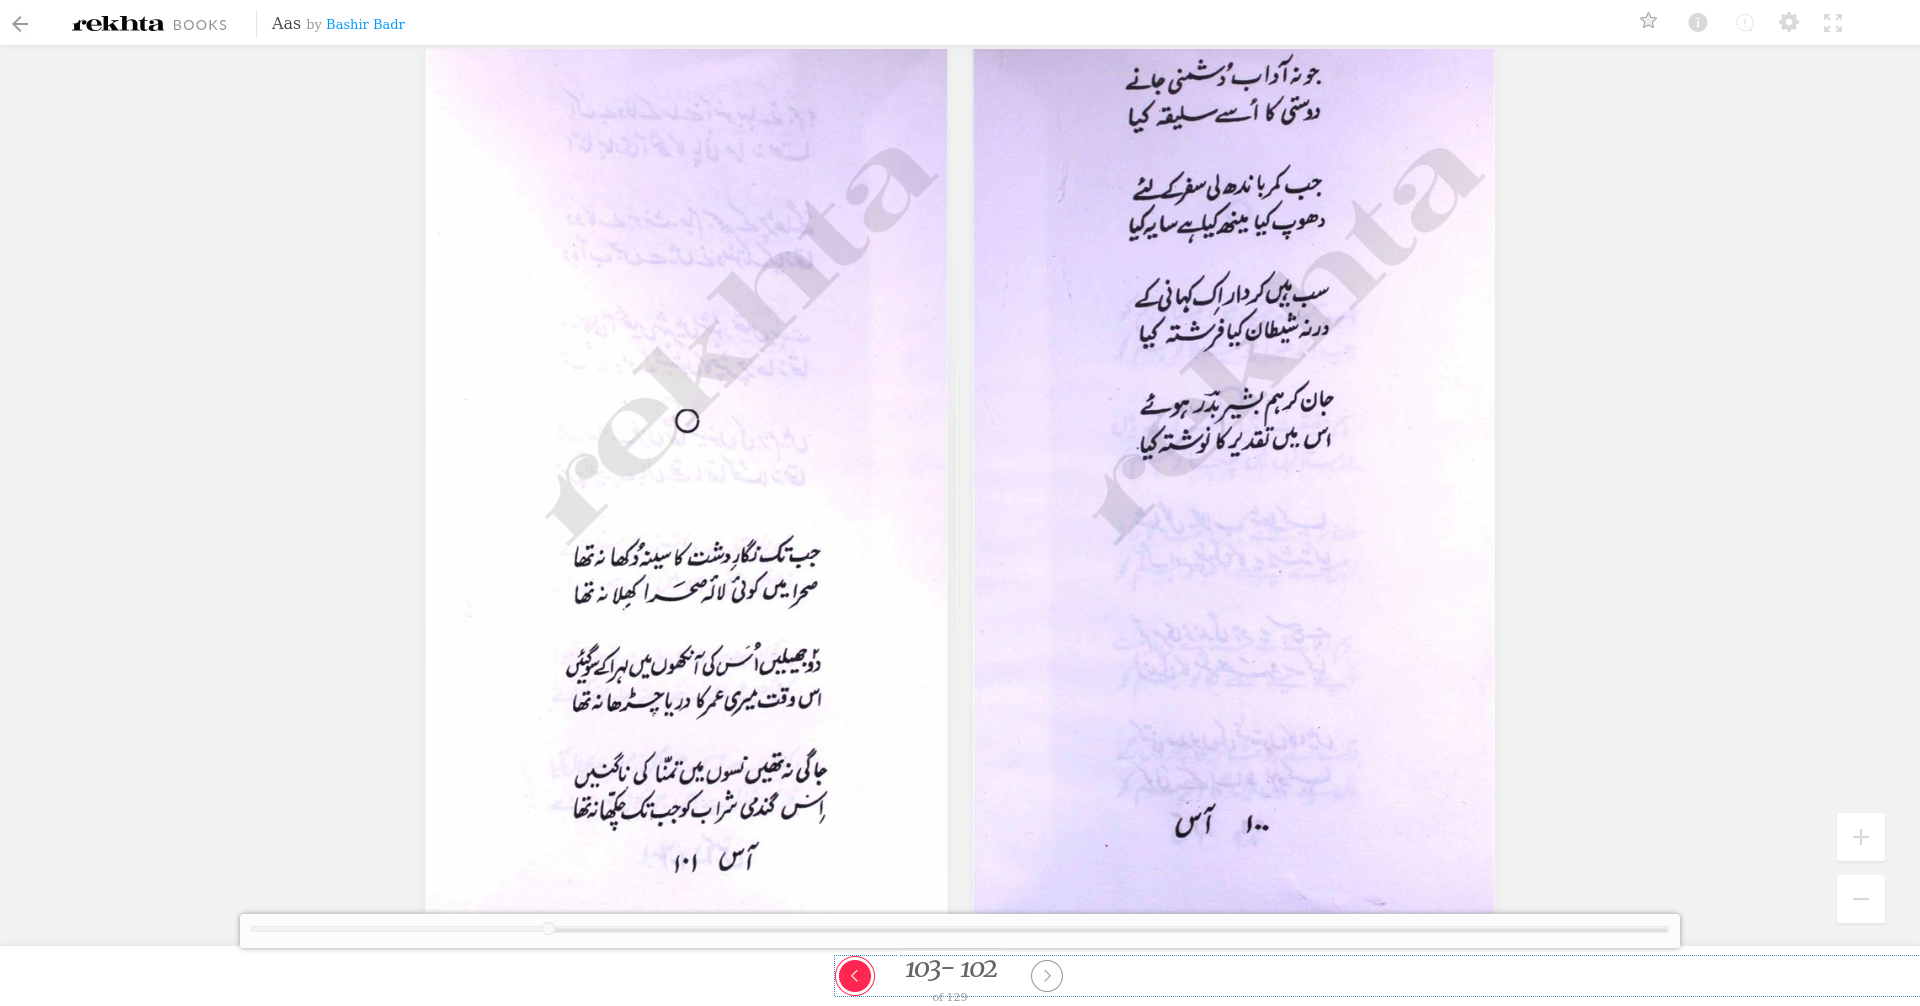 rekhta BOOKS Aas by Bashir Badr
جو نہ آدابِ دُشمنی جانے
دوستی کا اُسے سلیقہ کیا
جب کمر باندھ لی سفر کے لئے
دھوپ کیا مینھ کیا ہے سایہ کیا
سب ہیں کردار اِک کہانی کے
ورنہ شیطان کیا فرشتہ کیا
جان کر ہم بشیر بدر ہوئے
اس میں تقدیر کا نوشتہ کیا
۱۰۰ آس
rekhta
جب تک نگارِ دشت کا سینہ دُکھا نہ تھا
صحرا میں کوئی لالۂ صحرا کھِلا نہ تھا
دو جھیلیں اُس کی آنکھوں میں لہرا کے سو گئیں
اس وقت میری عمر کا دریا چڑھا نہ تھا
جاگی نہ تھیں نسوں میں تمنّا کی ناگنیں
اِس گندمی شراب کو جب تک چکھّا نہ تھا
آس ۱۰۱
rekhta
103- 102
of 129